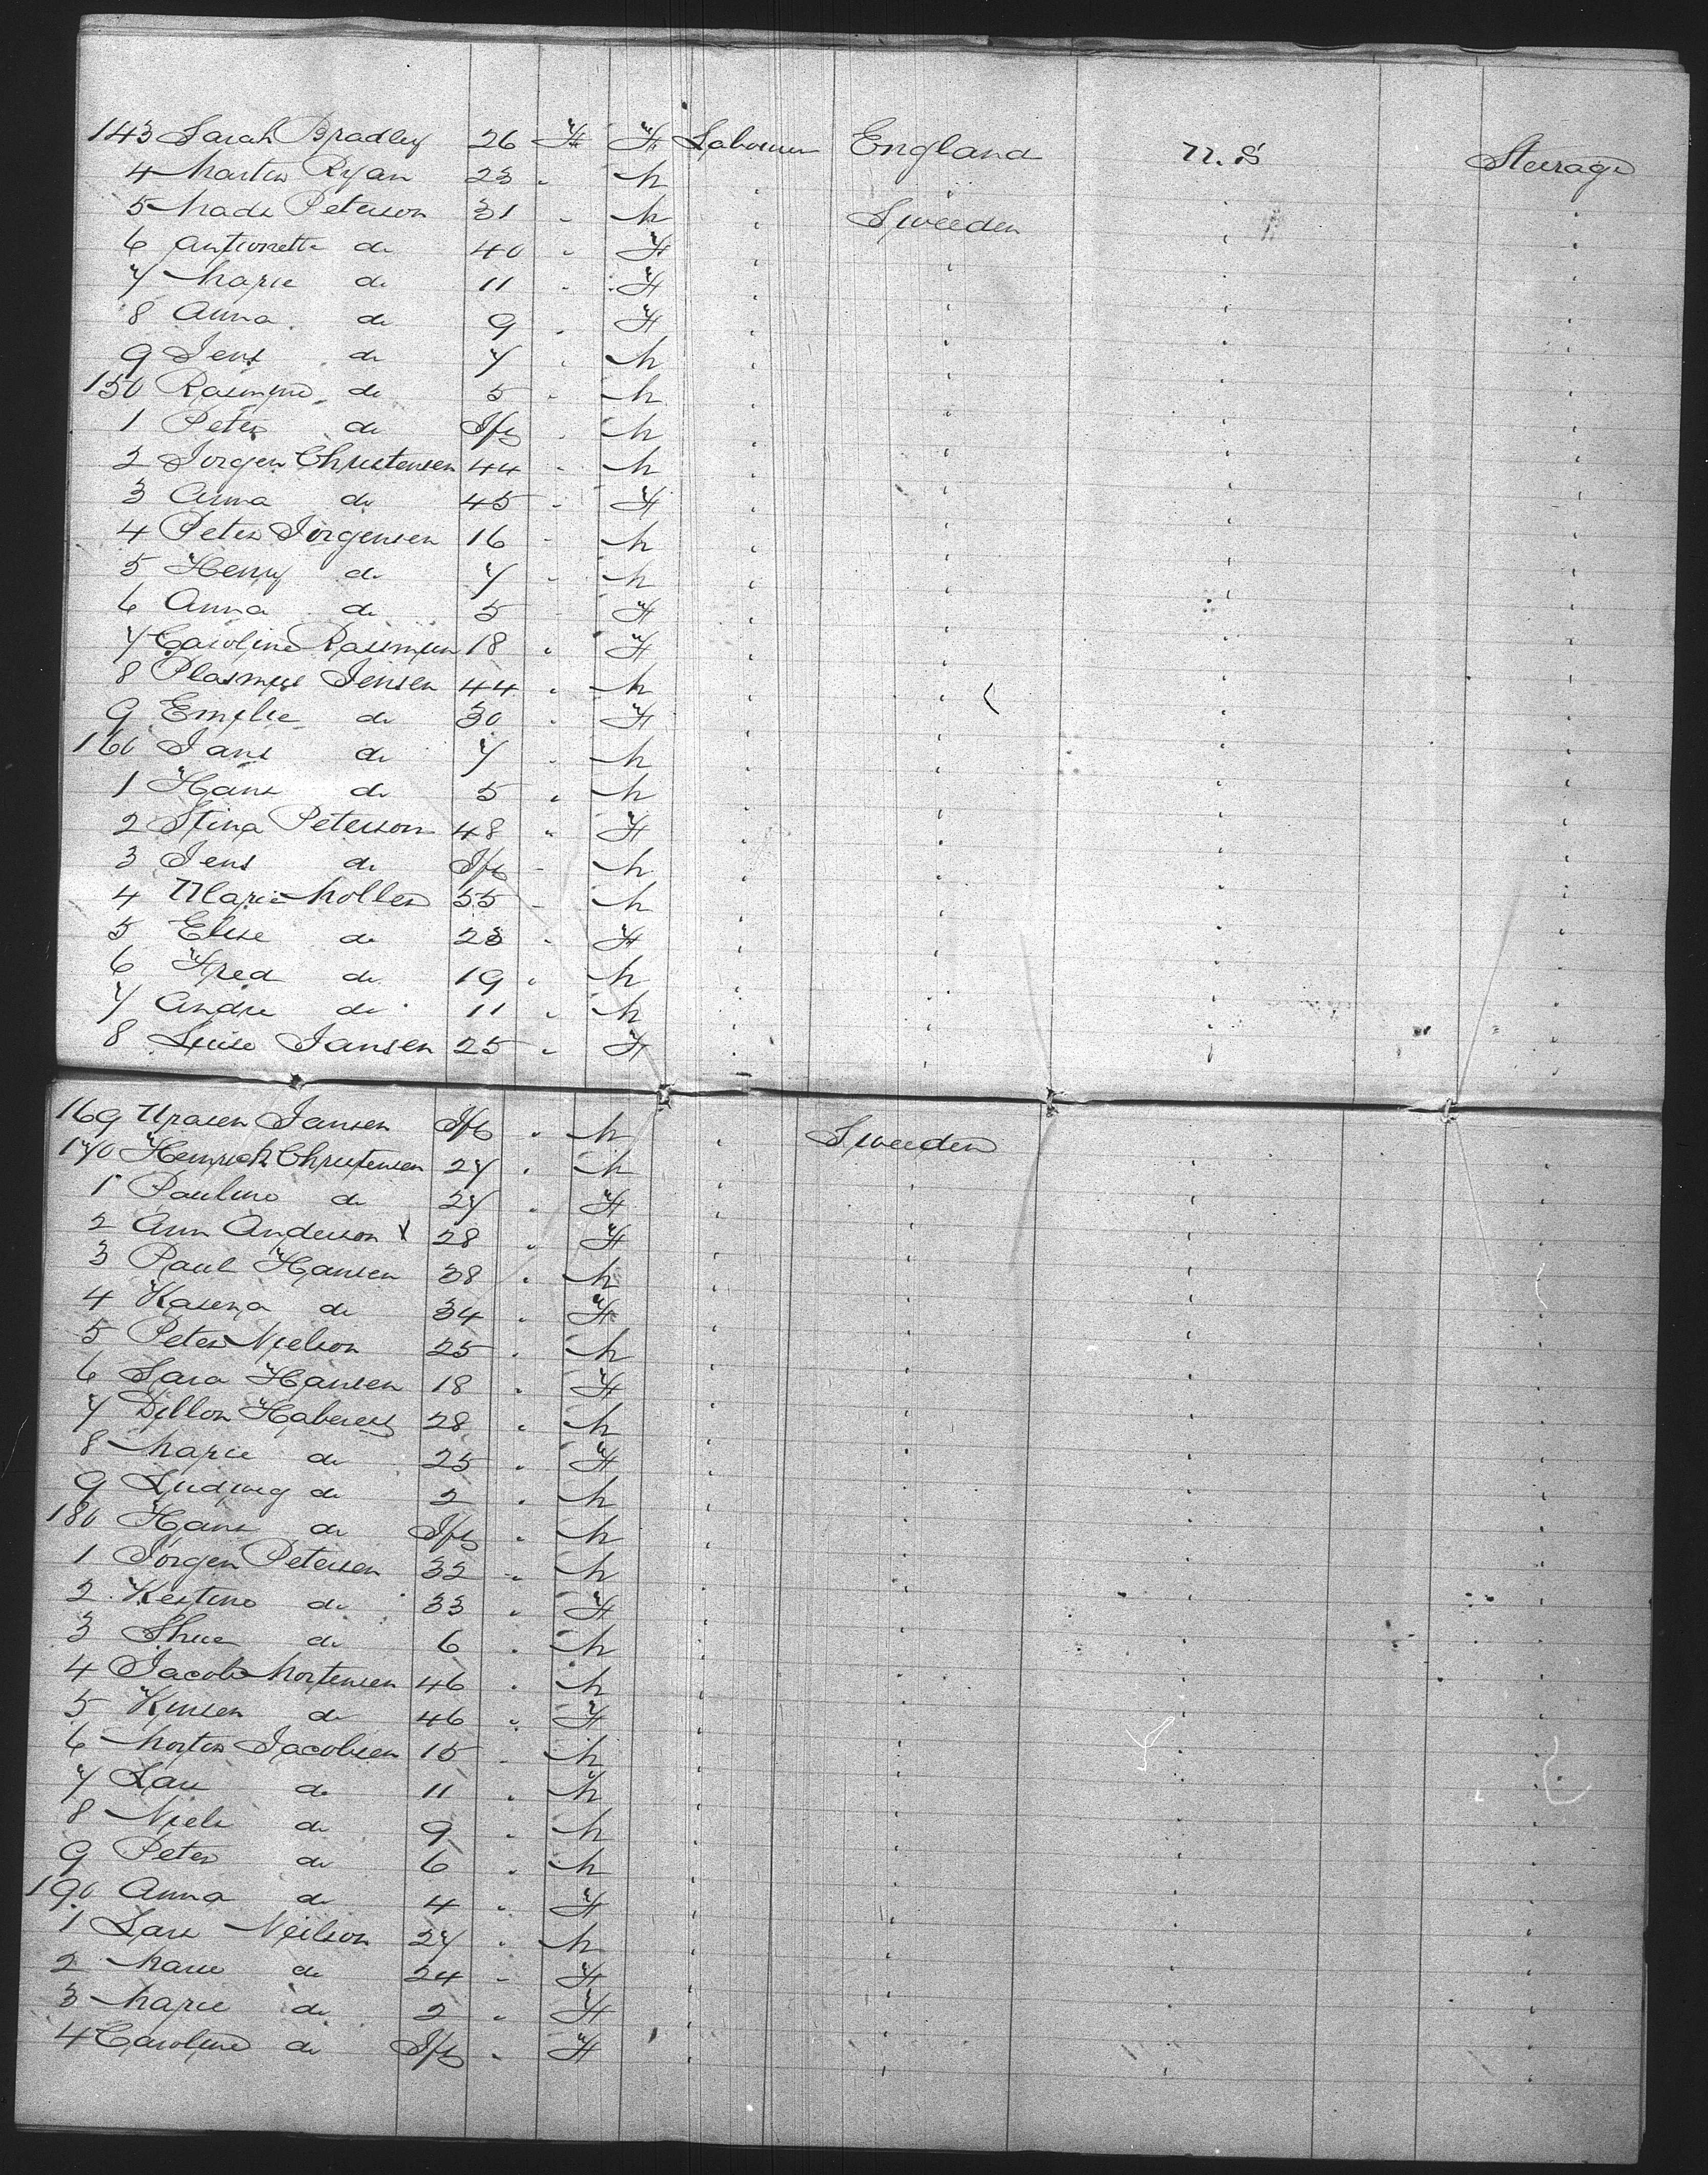 143 Sarah Bradley 26 F Labourer England U.S Steerage
4 Martin Ryan 23 " M " " " "
5 Mads Peterson 31 " M " Sweeden " "
6 Antionette do 40 " F " " " "
7 Marie do 11 " F " " " "
8 Anna do 9 " F " " " "
9 Jens do 7 " M " " " "
150 Rasmus do 5 " M " " " "
1 Peter do Inft " M " " " "
2 Jorgen Christensen 44 " M " " " "
3 Anna do 45 " F " " " "
4 Peter Jorgensen 16 " M " " " "
5 Henry do 7 " M " " " "
6 Anna do 5 " F " " " "
7 Caroline Rasmusen 18 " F " " " "
8 Jensen 44 " M " " " "
9 Emilie do 30 " F " " " "
160 Jans do 7 " M " " " "
1 Hans do 5 " M " " " "
2 Stina Peterson 48 " F " " " "
3 Jens do Inft " M " " " "
4 Marie Moller 55 " M " " " "
5 Elise do 23 " F " " " "
6 Fred do 19 " M " " " "
7 Andre do 11 " M " " " "
8 Luise Jansen 25 " F " " " "
169 Jansen Inft " M " Sweeden " "
170 Heinrich Christensen 27 " M " " " "
1 Pauline do 27 " F " " " "
2 Ann Anderson x 28 " F " " " "
3 Paul Hansen 38 " M " " " "
4 Kasena do 34 " F " " " "
5 Peter Nielson 25 " M " " " "
6 Sara Hansen 18 " F " " " "
7 Dillon 28 " M " " " "
8 Marie do 25 " F " " " "
9 Ludwig do 2 " M " " " "
180 Hans do Inft " M " " " "
1 Jorgen Petersen 32 " M " " " "
2 Kestino do 33 " F " " " "
3 do 6 " M " " " "
4 Jacob Mortensen 46 " M " " " "
5 do 46 " F " " " "
6 Morten Jacobsen 15 " M " " " "
7 Lars do 11 " M " " " "
8 Niels do 9 " M " " " "
9 Peter do 6 " M " " " "
190 Anna do 4 " F " " " "
1 Lars Neilson 27 " M " " " "
2 Marie do 24 " F " " " "
3 Marie do 2 " F " " " "
4 Caroline do Inft " F " " " "